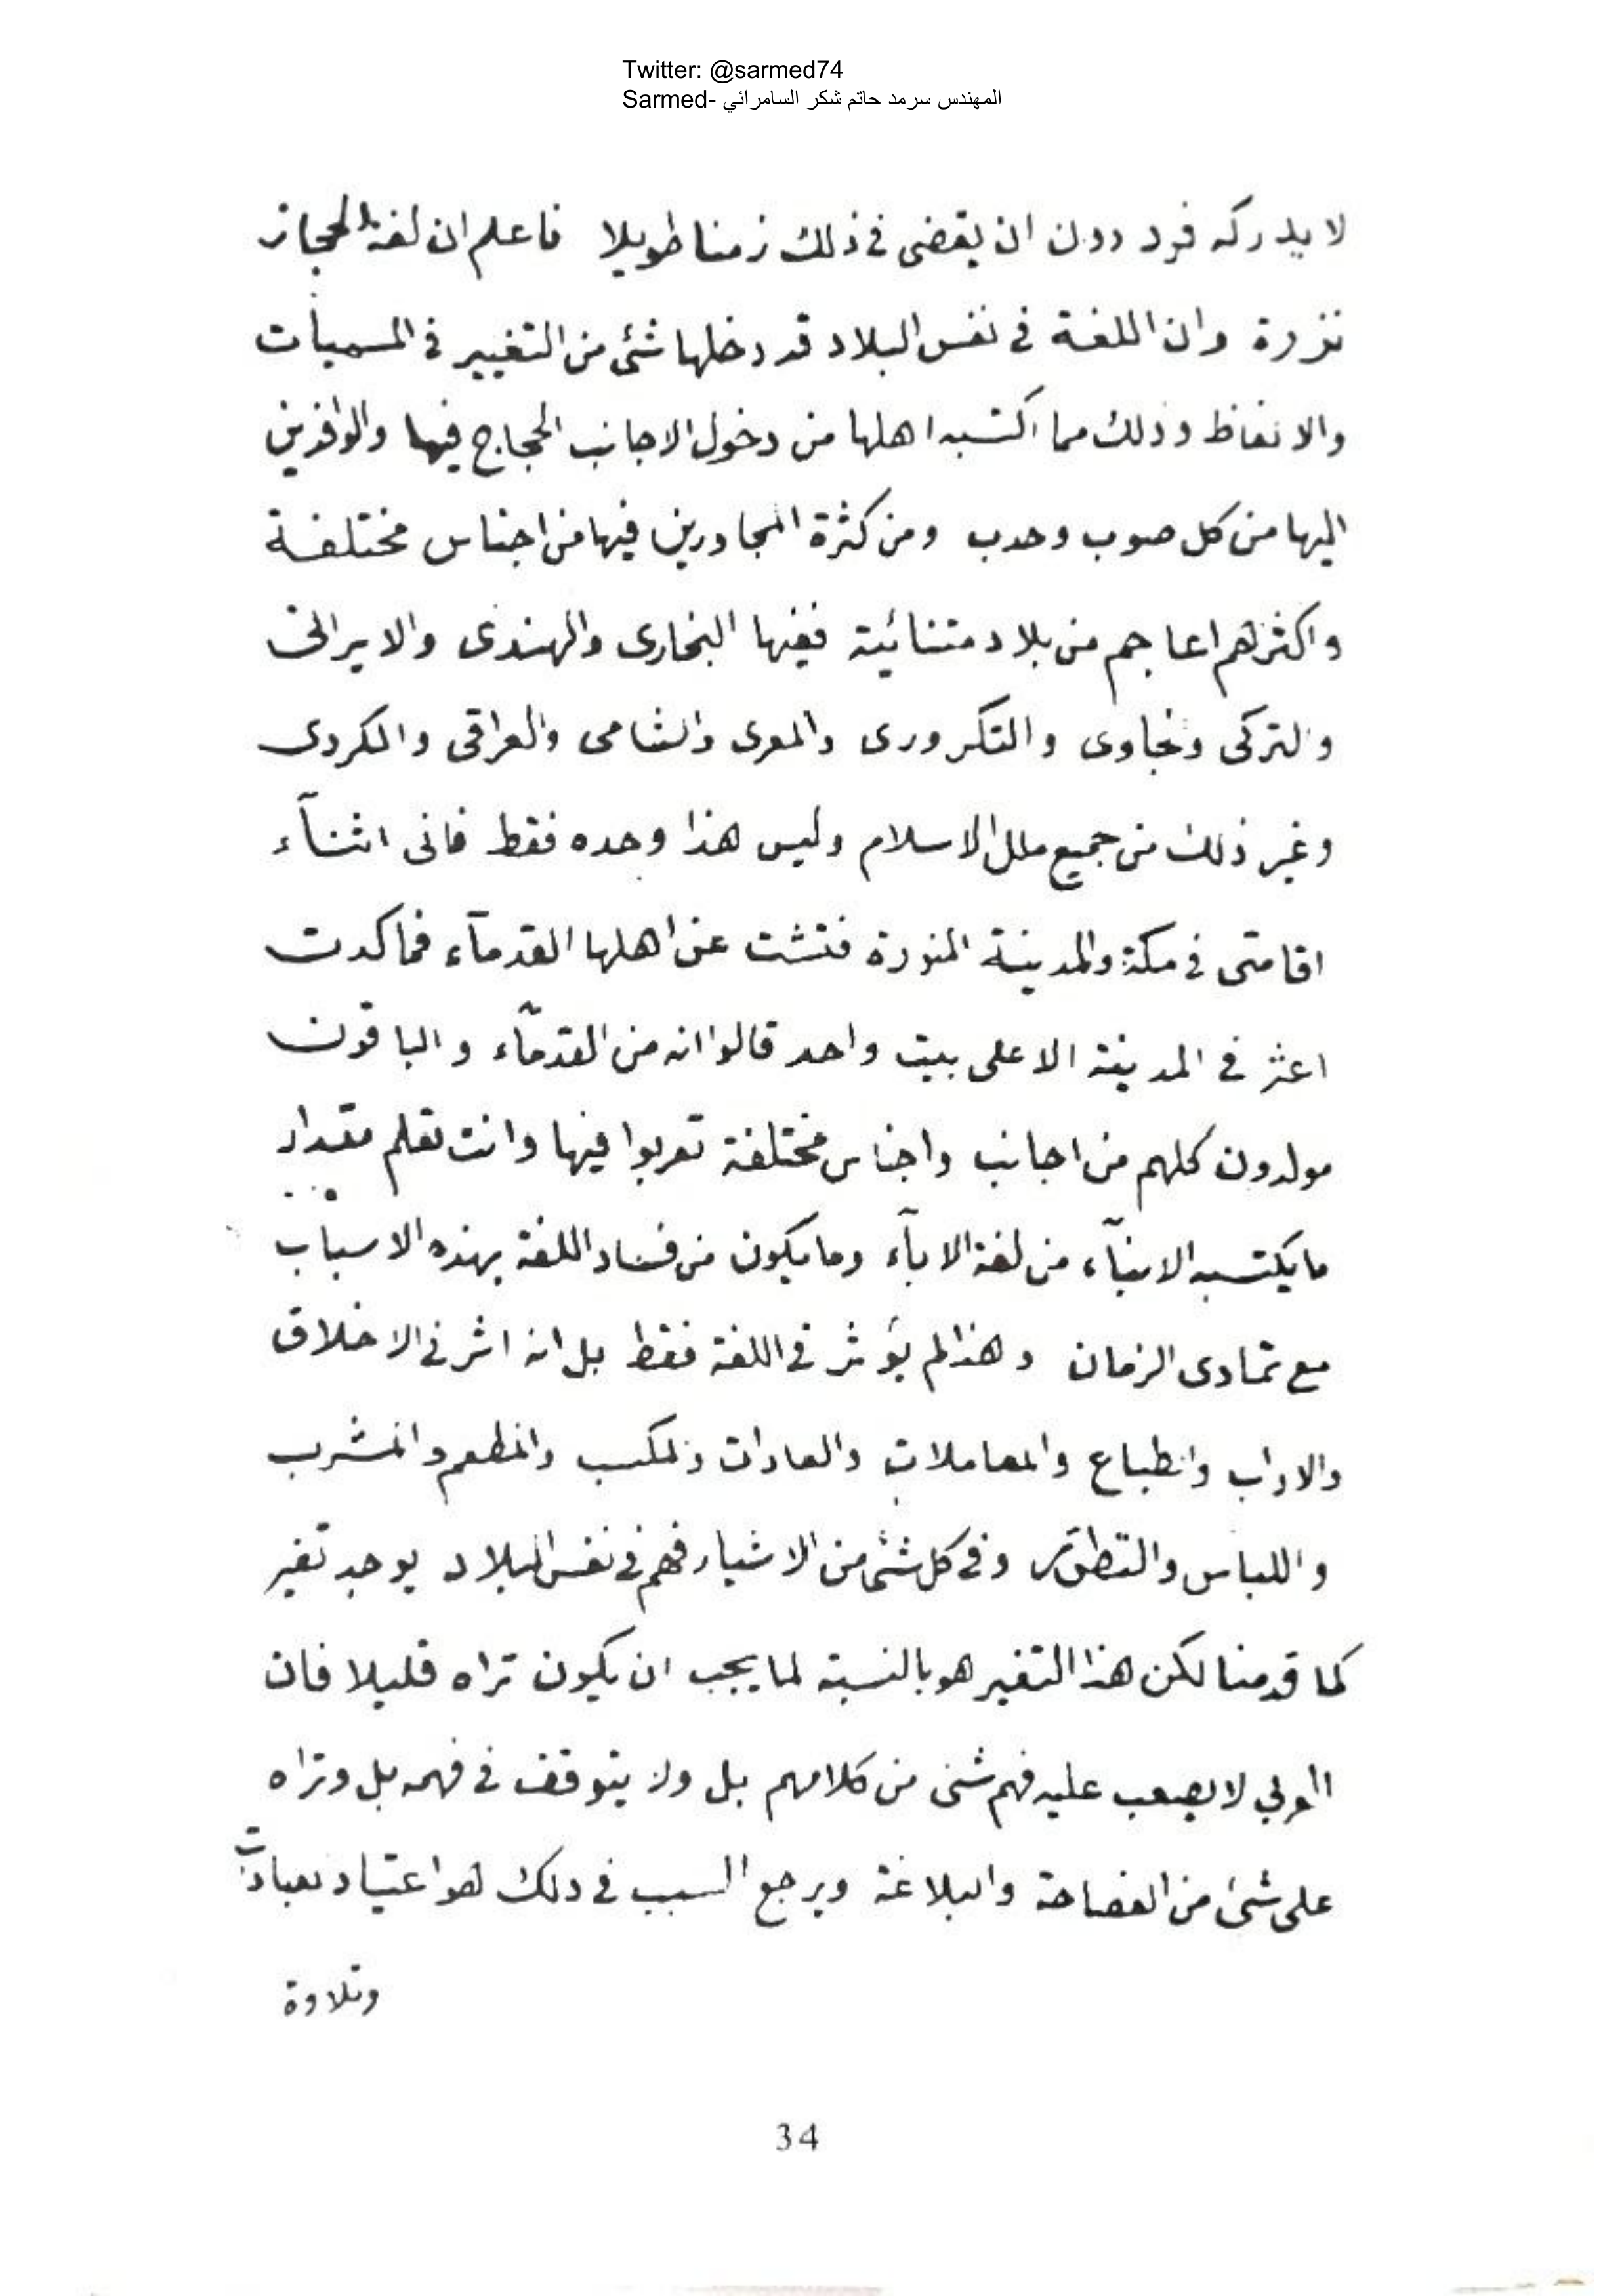 Twitter: @sarmed74
Sarmed- المهندس سرمد حاتم شكر السامرائي
لا يدركه فرد دون ان يقضى فى ذلك زمنا طويلا فاعلم ان لغة الحجاز
نزرة وان اللغة فى نفس البلاد قد دخلها شئ من التغيير فى المسميات
والالفاظ وذلك مما اكتسبه اهلها من دخول الاجانب الحجاج فيها والوافدين
اليها من كل صوب وحدب ومن كثرة المجاورين فيها من اجناس مختلفة
واكثرهم اعاجم من بلاد متنائية ففيها البخارى والهندى والايرانى
والتركى والجاوى والتكرورى والمصرى والشامى والعراقى والكردى
وغير ذلك من جميع ملل الاسلام وليس هذا وحده فقط فانى اثنآء
اقامتى فى مكة والمدينة المنورة فتشت عن اهلها القدمآء فما كدت
اعثر فى المدينة الا على بيت واحد قالوا انه من القدمآء والباقون
مولدون كلهم من اجانب واجناس مختلفة تعربوا فيها وانت تعلم مقدار
ما يكتسبه الابنآء من لغة الابآء وما يكون من فساد اللغة بهذه الاسباب
مع تمادى الزمان وهذا لم يؤثر فى اللغة فقط بل انه اثر فى الاخلاق
والاداب والطباع والمعاملات والعادات والمكسب والمطعم والمشرب
واللباس والتطور وفى كل شئ من الاشياء فهم فى نفس البلاد يوجد تغير
كما قدمنا لكن هذا التغير هو بالنسبة لما يجب ان يكون تراه قليلا فان
العربي لا يصعب عليه فهم شئ من كلامهم بل ولا يتوقف فى فهمه بل وتراه
على شئ من الفصاحة والبلاغة ويرجع السبب فى ذلك هو اعتياد
وتلاوة
34